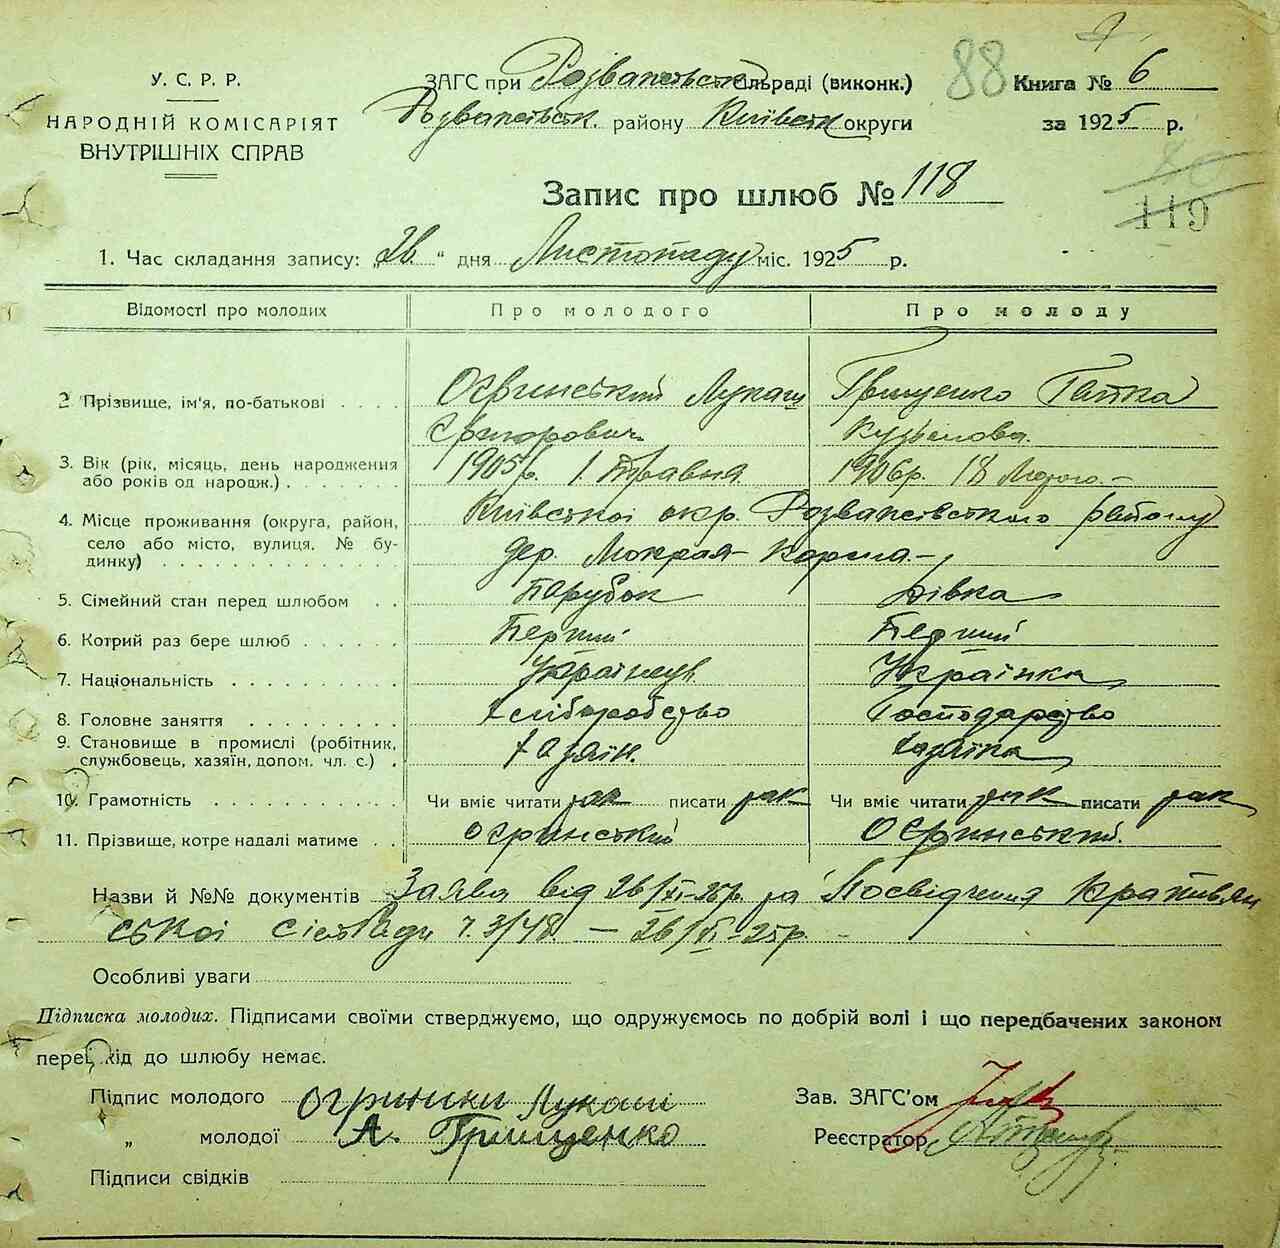 88
У. С. Р. Р.
НАРОДНІЙ КОМІСАРІЯТ
ВНУТРІШНІХ СПРАВ
ЗАГС при Розважевськ сільраді (виконк.)
Розважівськ. району Київськ округи
Книга № 6
за 1925 р.
Запис про шлюб № 118
119
1. Час складання запису: „26“ дня Листопаду міс. 1925 р.
Відомості про молодих
Про молодого
Про молоду
2 Прізвище, ім'я, по-батькові
Лукаш
Грищенко Гапка
Кузьмова.
3. Вік (рік, місяць, день народження або років од народж.)
1905р. 1 Травня
1906р. 18 Лютого. –
4. Місце проживання (округа, район, село або місто, вулиця, № будинку)
Київської окр. Розважівського району
дер. Мокрая Корма –
5. Сімейний стан перед шлюбом
Парубок
Дівка
6. Котрий раз бере шлюб
Перший
Перший
7. Національність
Українець
Українка
8. Головне заняття
Хліборобство
Господарство
9. Становище в промислі (робітник, службовець, хазяїн, допом. чл. с.)
Хазяїн.
Хазяйка
10. Грамотність
Чи вміє читати так писати так
Чи вміє читати так писати так
11. Прізвище, котре надалі матиме
Огринський
Огринський.
Назви й №№ документів Заява від 26/XI-25р. та Посвідчення Крапивян
ської сільради ч. 3148. – 26/XI-25р.
Особливі уваги
Підписка молодих. Підписами своїми стверджуємо, що одружуємось по добрій волі і що передбачених законом
перешкід до шлюбу немає.
Підпис молодого Лукаш
„ молодої А. Грищенко
Підписи свідків
Зав. ЗАГС'ом
Реєстратор